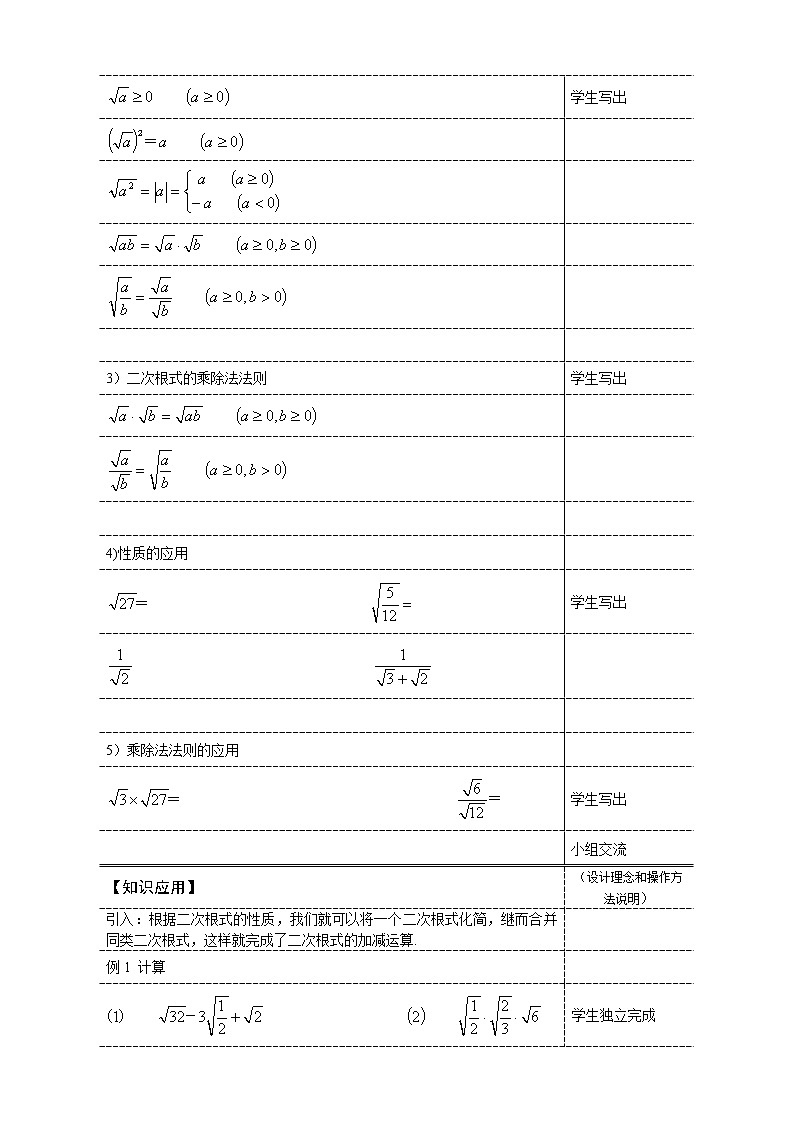 √a ≥ 0 (a ≥ 0) 学生写出
(√a)²=a (a ≥ 0)
√a² = |a| = { a (a ≥ 0)
−a (a < 0)
√ab = √a · √b (a ≥ 0, b ≥ 0)
√(a/b) = √a/√b (a ≥ 0, b > 0)
3）二次根式的乘除法法则 学生写出
√a · √b = √ab (a ≥ 0, b ≥ 0)
√a/√b = √(a/b) (a ≥ 0, b > 0)
4)性质的应用
√27= √(5/12) = 学生写出
1/√2 1/(√3+√2)
5）乘除法法则的应用
√3×√27= √6/√12= 学生写出
小组交流
【知识应用】 （设计理念和操作方
法说明）
引入：根据二次根式的性质，我们就可以将一个二次根式化简，继而合并
同类二次根式，这样就完成了二次根式的加减运算.
例1 计算
(1) √32-3√(1/2)+√2 (2) √(1/2)·√(2/3)·√6 学生独立完成